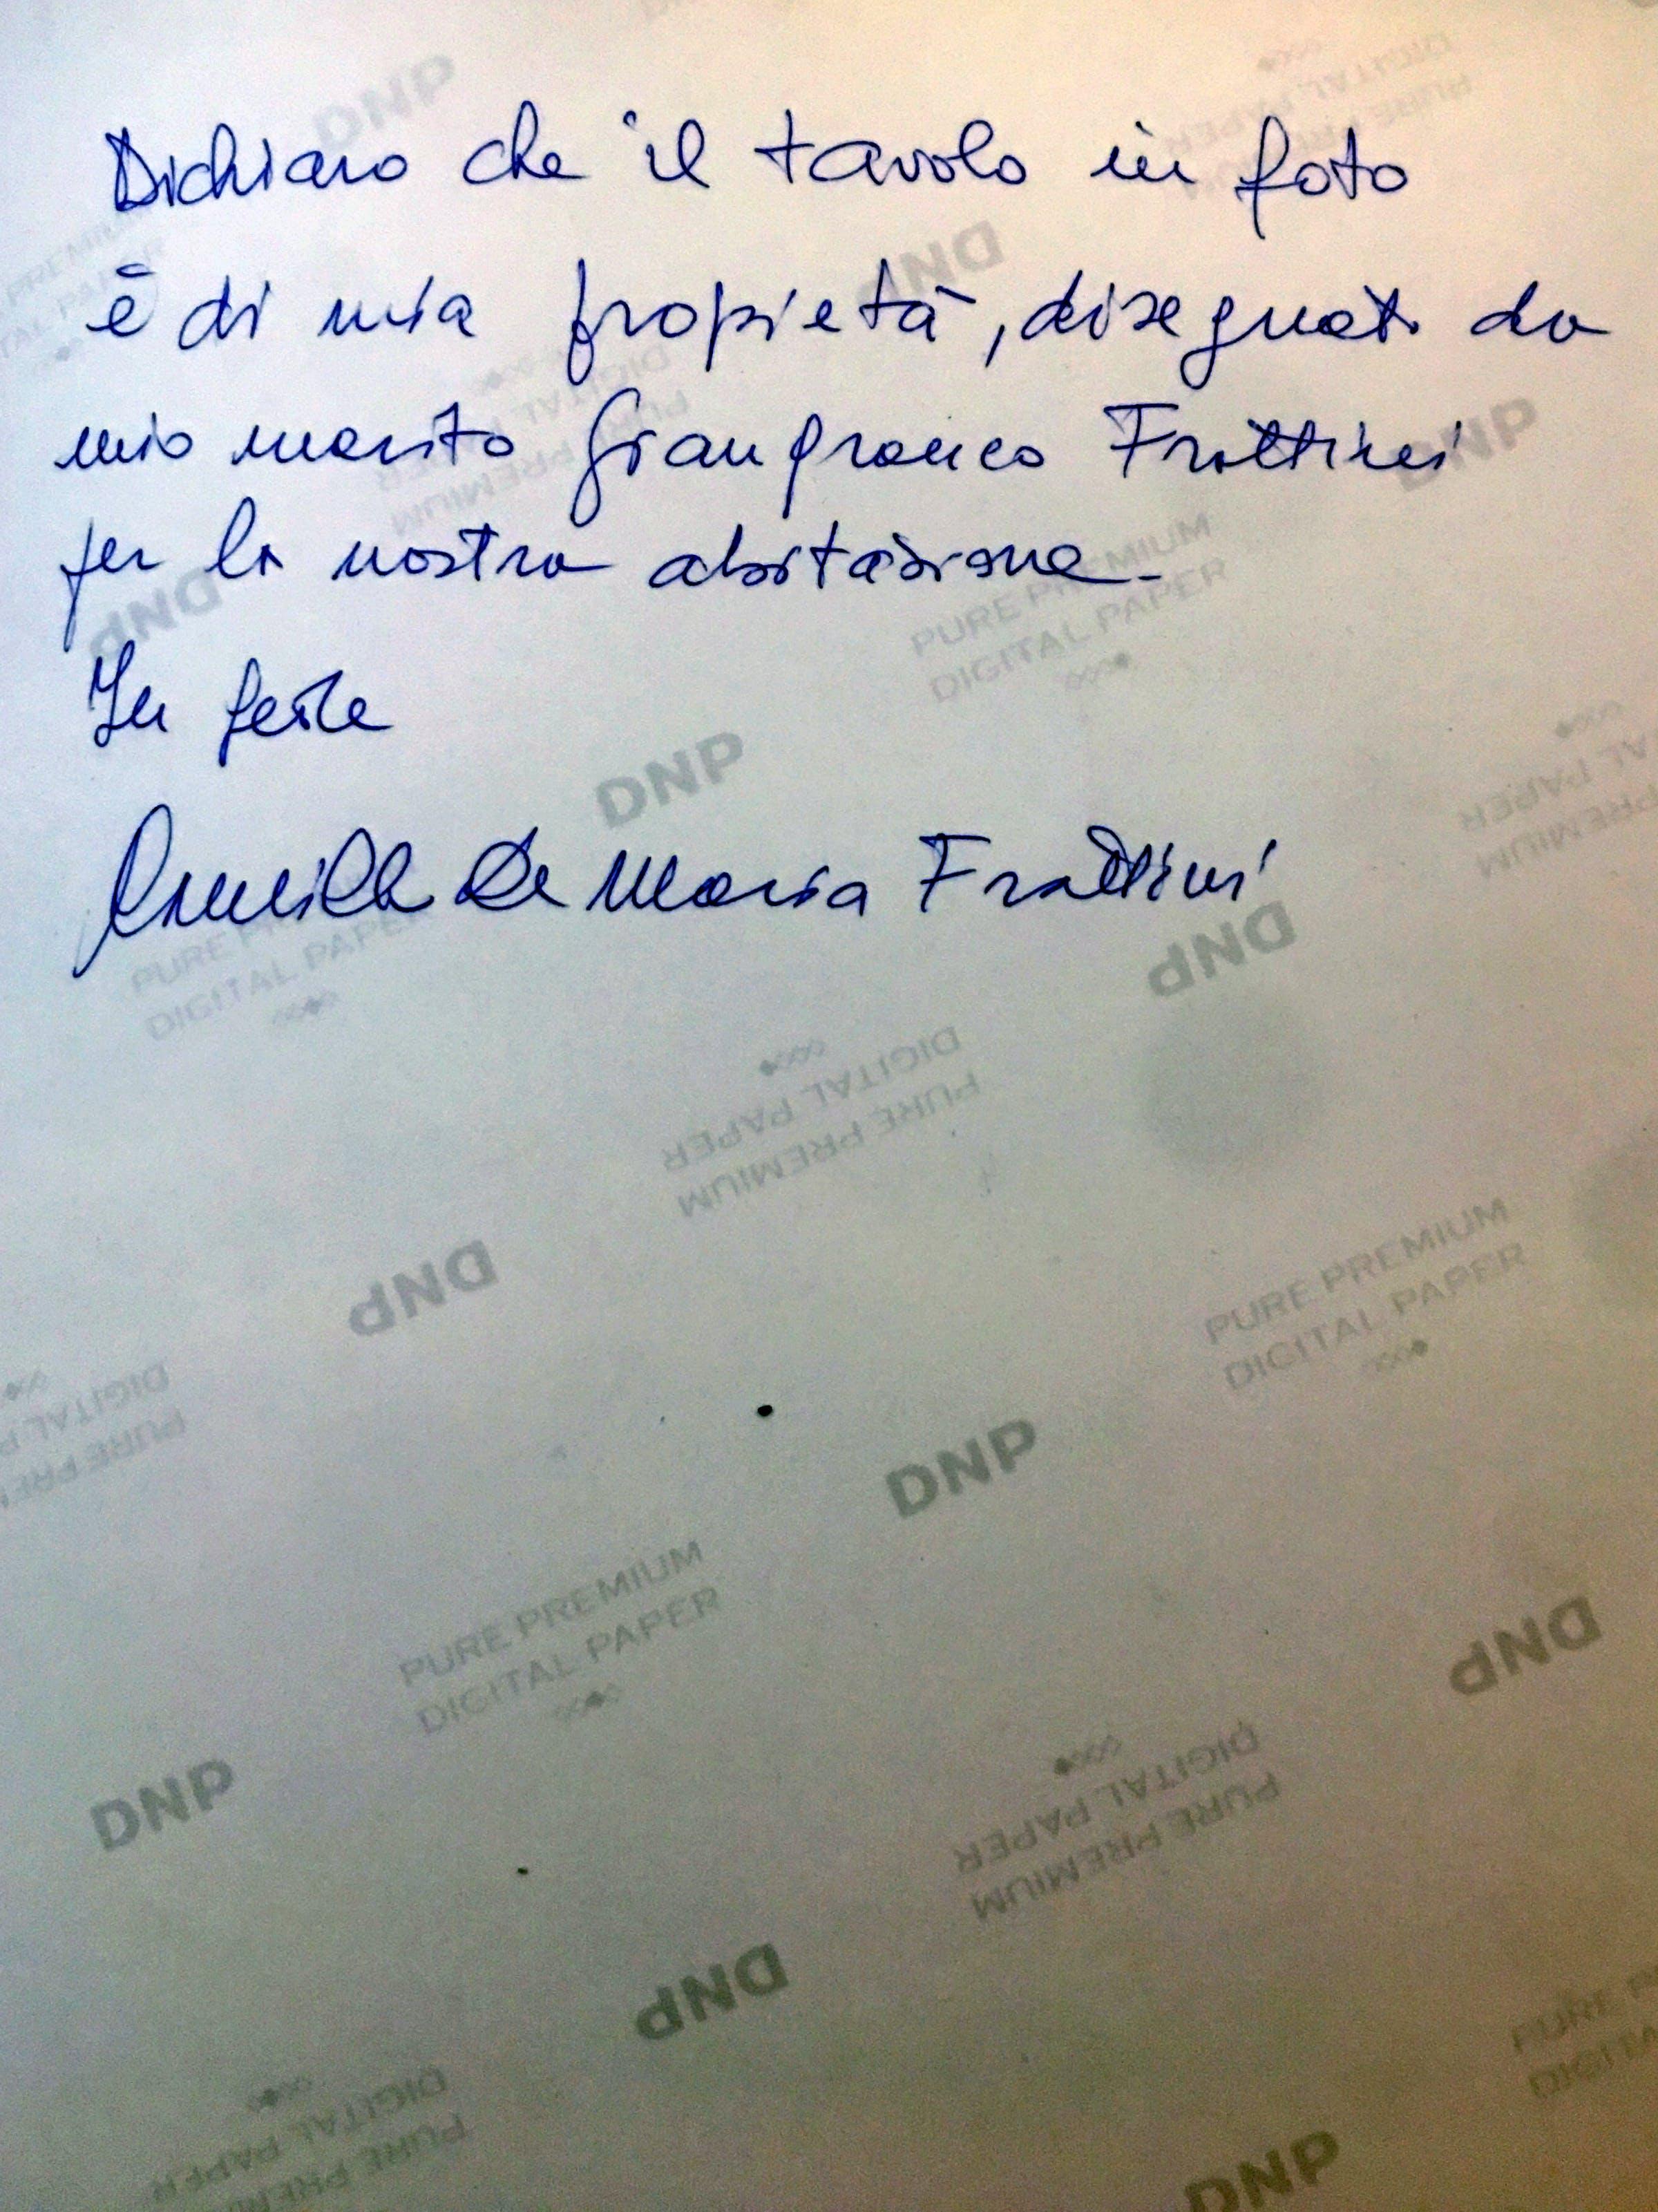 Dichiaro che il tavolo in foto
è di mia propietà, disegnato da
mio marito Gianfranco Frattini
per la nostra abitazione.
In fede
De Maria Frattini
DNP
PURE PREMIUM
DIGITAL PAPER